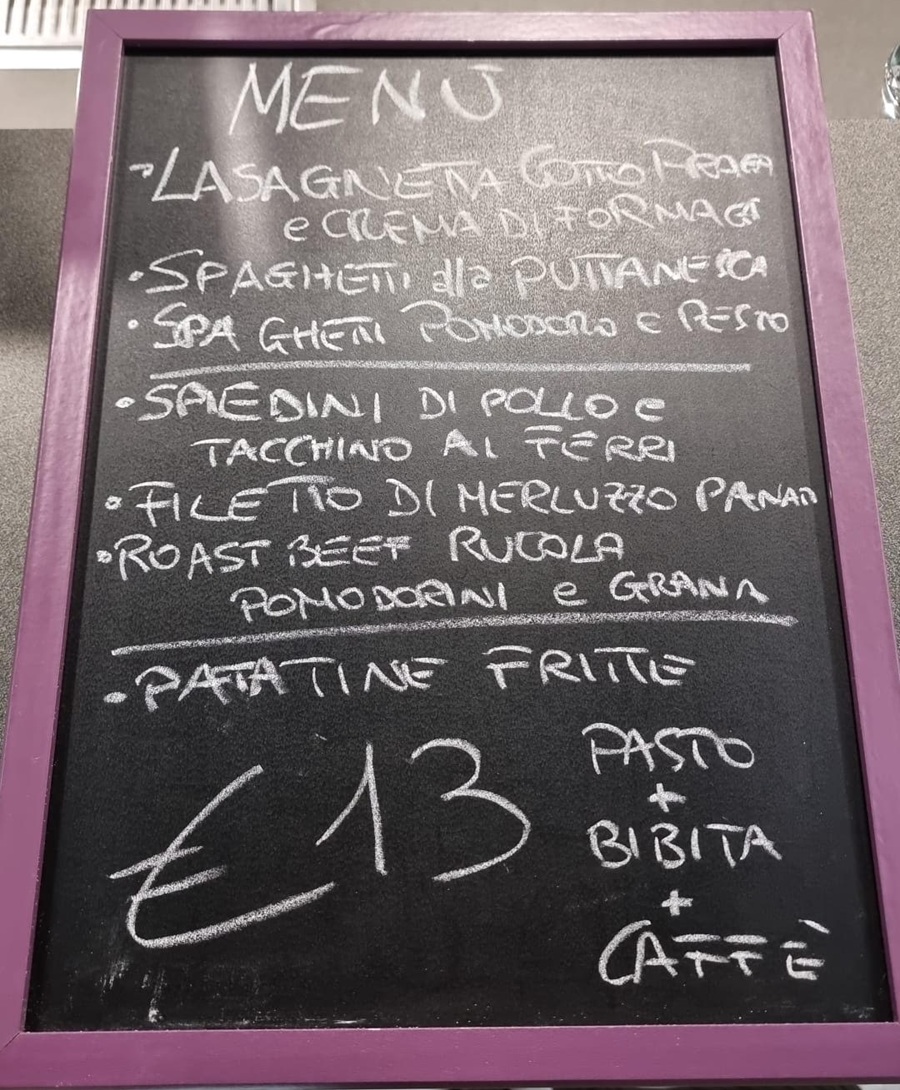 MENÙ
LASAGNETTA COTTO PRAGA
e CREMA DI FORMAGGI
• SPAGHETTI alla PUTTANESCA
• SPAGHETTI POMODORO E PESTO
• SPIEDINI DI POLLO e
TACCHINO AI FERRI
• FILETTO DI MERLUZZO PANATO
• ROAST BEEF RUCOLA
POMODORINI e GRANA
• PATATINE FRITTE
€13
PASTO
+
BIBITA
+
CAFFÈ